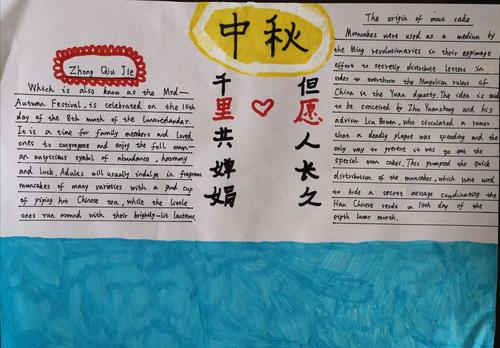 中秋
Zhong Qiu Jie
Which is also know as the Mid-
Autumn Festival, is celebrated on the 15th
day of the 8th month of the lunarcalendar.
It is a time for family members and loved
ones to congregate and enjoy the full moon-
an auspicious symbol of abundance, harmony
and luck, Adults will usually indulge in fragrant
mooncakes of many varieties with a good cup
of piping hot Chinese tea, while the little
ones run around with their brightly-lit lantens
但愿人长久
千里共婵娟
The origin of moon cake
Mooncakes were used as a medium by
the Ming revolutionaries in their espionage
effort to secretly distribute letters in
order to overthrow the Mongolian rulers of
China in the Yuan dynasty. The idea is said
to be conceived by Zhu Yuanzhang and his
advisor Liu Bowen, who circulated a rumor
that a deadly plague was speading and the
only way to prevent is was to eat the
special moon cakes, This prompted the quick
distribution of the mooncakes, which were used
to hide a secret message coordinating the
Han Chinese revolt on 15th day of the
eighth lunar month.